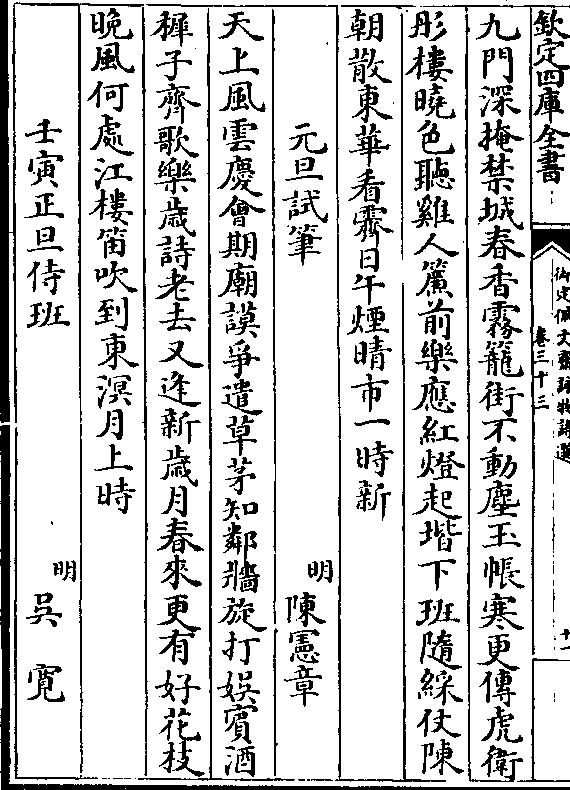 欽定四庫全書
御定佩文齋詠物詩選
卷三十三
十一
九門深掩禁城春香霧籠街不動塵玉帳寒更傳虎衛
彤樓曉色聽雞人簾前樂應紅燈起堦下班隨綵仗陳
朝散東華看霽日午煙晴市一時新
元旦試筆
明 陳憲章
天上風雲慶會期廟謨爭遣草茅知鄰牆旋打娛賓酒
穉子齊歌樂歲詩老去又逢新歲月春來更有好花枝
晚風何處江樓笛吹到東溟月上時
壬寅正旦侍班
明 吳寛